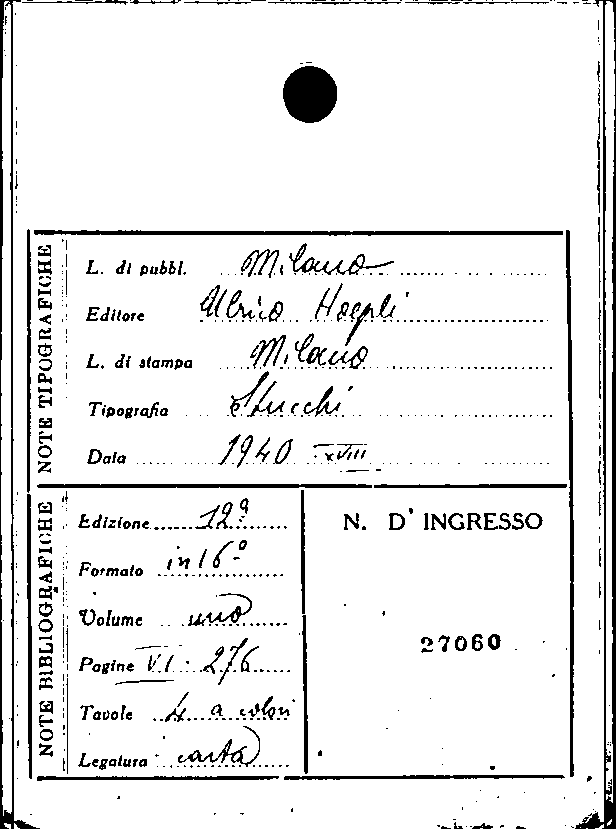 NOTE TIPOGRAFICHE
L. di pubbl. Milano
Editore Ulrico Hoepli
L. di stampa Milano
Tipografia Stucchi
Data 1940 XVIII
NOTE BIBLIOGRAFICHE
Edizione 12ª
Formato in 16º
Volume uno
Pagine VI - 276
Tavole 4 a colori
Legatura carta
N. D' INGRESSO
27060